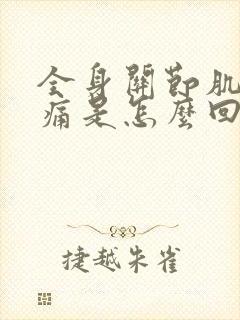 全身關節肌
痛是怎麼回
捷越朱雀